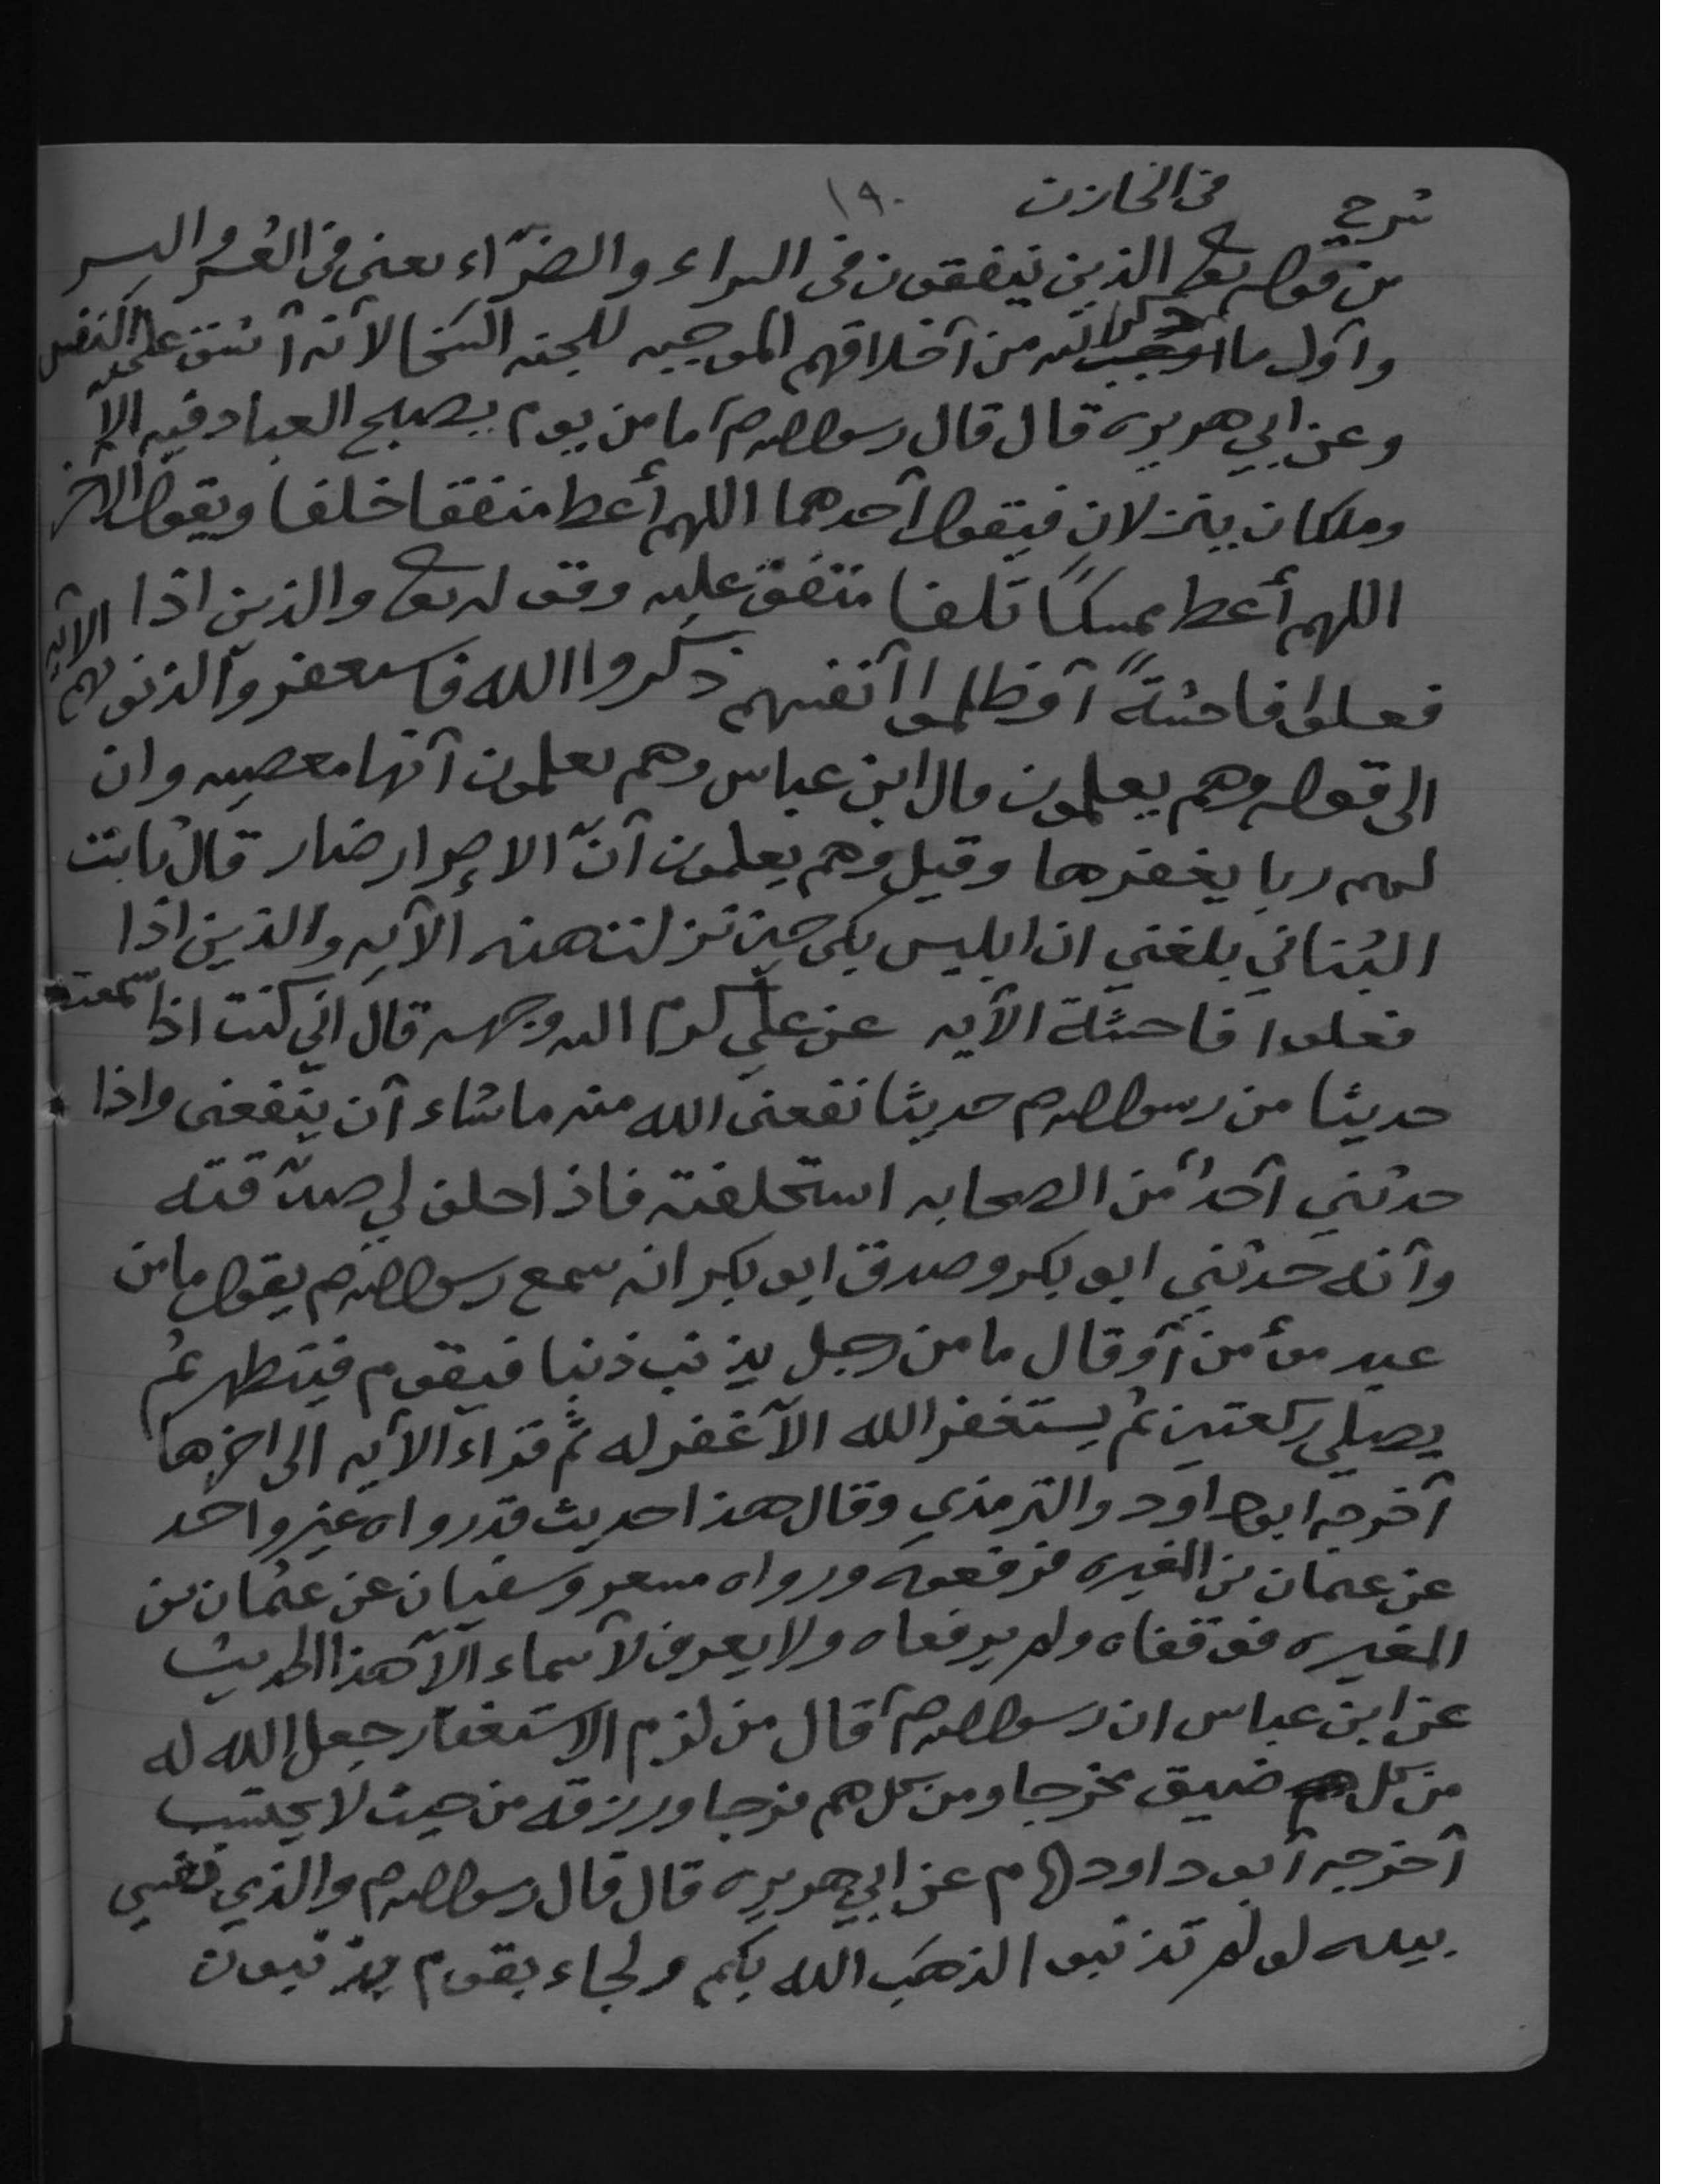 شرح في الخازن ١٩٠
من قوله تعالى الذين ينفقون في السراء والضرّاء يعنى في العُسر واليسر
وأول ما ذكر الله من أخلاقهم الموجبه للجنه السَخا لأنه أشق على النفس
وعن ابي هريره قال قال رسول الله صم ما من يوم يصبح العباد فيه الا
وملكان ينزلان فيقول أحدهما اللهم أعط منفقا خلفا ويقول الآخر
اللهم أعط ممسكاً تلفا متفق عليه وقوله تعالى والذين اذا
فعلوا فاحشةً أو ظلموا أنفسهم ذكروا الله فاستغفروا لذنوبهم الآيه
الى قوله وهم يعلمون قال ابن عباس وهم يعلمون أنها معصيه وان
لهم ربا يغفرها وقيل وهم يعلمون أنّ الاصرار ضار قال ثابت
البُناني بلغني ان ابليس بكى حين نزلت هذه الآيه والذين اذا
فعلوا فاحشة الآيه عن علي كرم الله وجهه قال اني كنت اذا سمعت
حديثا من رسول الله صم حديثا نفعنى الله منه ما شاء أن ينفعنى واذا
حدثني أحدٌ من الصحابه استحلفته فاذا حلف لي صدّقته
وأنه حدثني ابو بكر وصدق ابو بكر انه سمع رسول الله صم يقول ما من
عبد مؤمن أو قال ما من رجل يذنب ذنبا فيقوم فيتطهر ثم
يصلي ركعتين ثم يستغفر الله الّا غفر له ثم قراء الآيه الى اخرها
أخرجه ابو داود والترمذي وقال هذا حديث قد رواه غير واحد
عن عثمان بن المغيره فرفعوه ورواه مسعر وسفيان عن عثمان بن
المغيره فوقفاه ولم يرفعاه ولا يعرف لأسماء الّا هذا الحديث
عن ابن عباس ان رسول الله صم قال من لزم الاستغفار جعل الله له
من كل ضيق مخرجا ومن كل هم فرجا ورزقه من حيث لا يحتسب
أخرجه أبو داود م عن ابي هريره قال قال رسول الله صم والذي نفسي
بيده لو لم تذنبوا لذهَب الله بكم ولجاء بقوم يذنبون